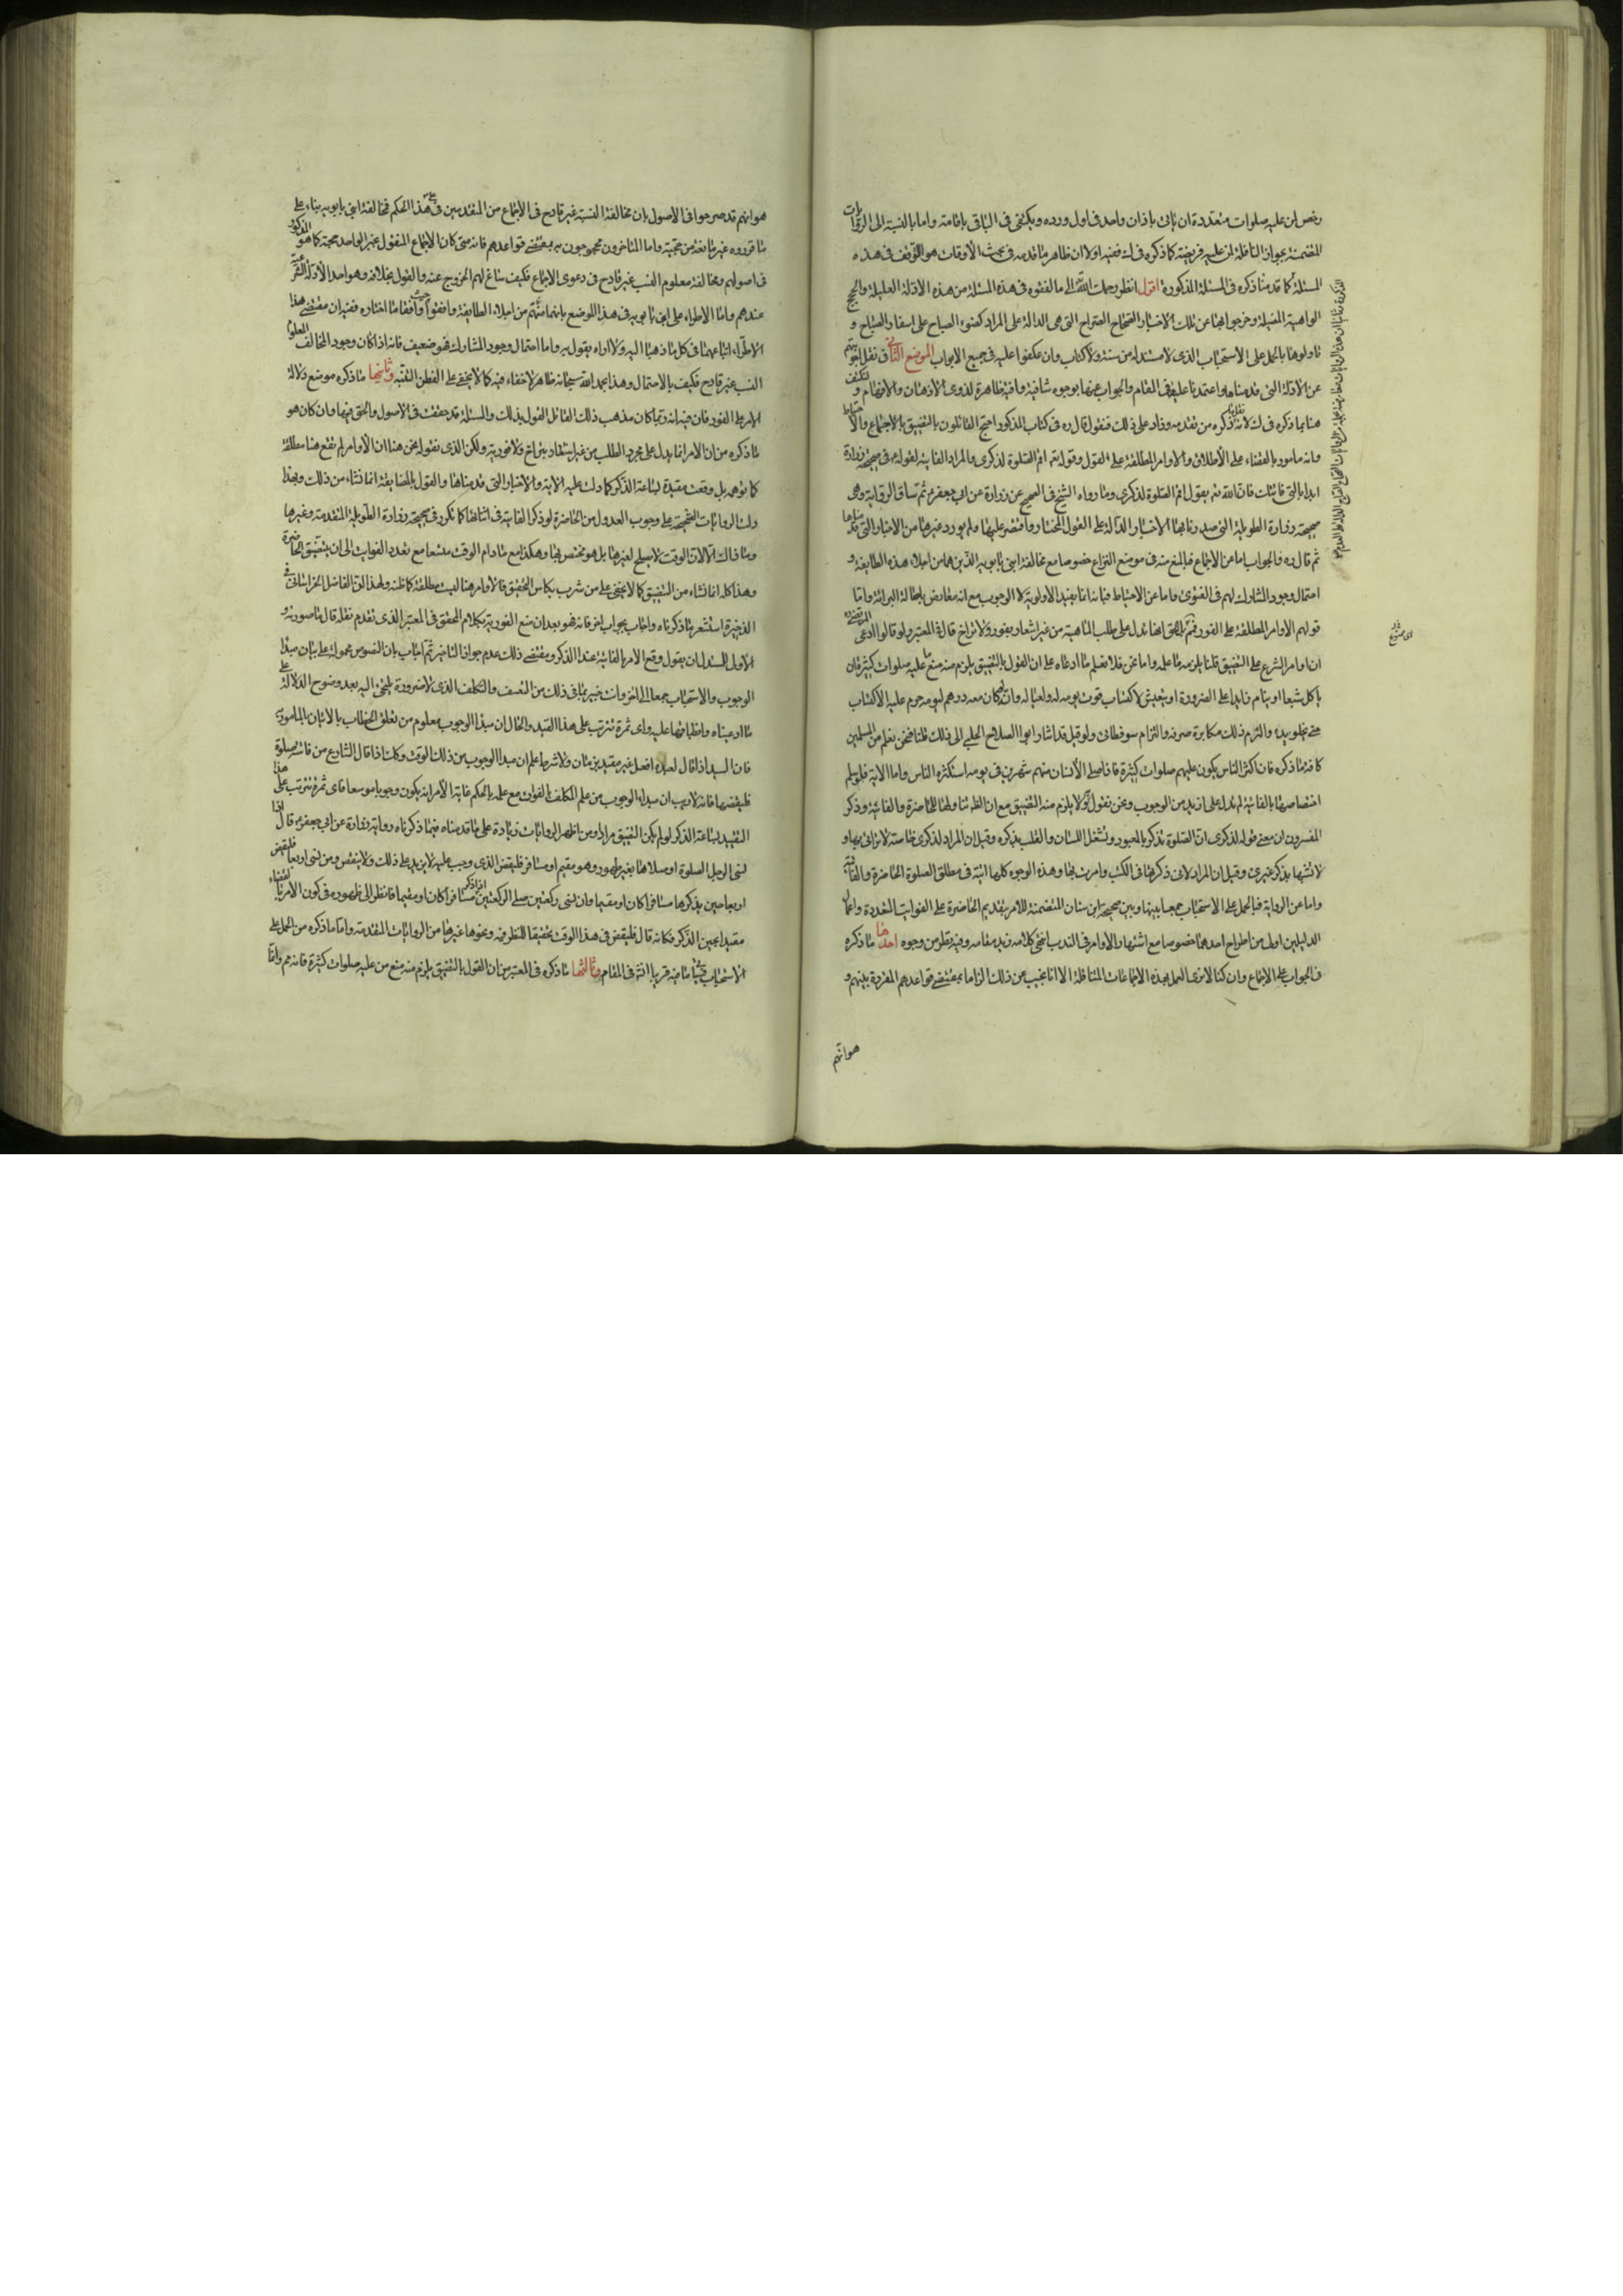 رخص لمن عليه صلوات متعددة ان ياتى باذان واحد فى اول ورده ويكتفى فى الباقى باقامة واما بالنسبة الى الروايات
المتضمنة بجواز النافلة لمن عليه فريضة كما ذكره فى ففيه اولا ان ظاهر ما قدمه فى بحث الأوقات هو التوقف فى هذه
المسئلة كما قدمنا ذكره فى المسئلة المذكورة اقول انظر رحمك الله الى ما لفقوه فى هذه المسئلة من هذه الادلة العليلة والحجج
الواهية الضئيلة وخرجوا بها عن تلك الاخبار الصحاح الصراح التى هى الدالة على المراد كضوء الصباح على اسفار الصباح و
تاولوها بالحمل على الاستحباب الذى لا مستند له من سنة ولا كتاب وان عكفوا عليه فى جميع الابواب الموضع الثانى فى نقل اجوبتهم
عن الأدلة التى قدمناها واعتمدنا عليها فى المقام والجواب عنها بوجوه شافية وافية ظاهرة لذوى الأذهان والافهام و لنكتف
هنا بما ذكره فى لانه ذكره من تقدمه وزاد على ذلك فنقول قال ره فى كتاب المذكور احتج القائلون بالتضييق بالاجماع والاحتياط
وانه مامور بالقضاء على الأطلاق والاوامر المطلقة على الفور وقوله تعالى اقم الصلوة لذكرى والمراد الفايتة لقوله فى صحيحة زرارة
ابدا بالتى فاتتك فان الله يقول اقم الصلوة لذكرى وما رواه الشيخ فى الصحيح عن زرارة عن ابى جعفر ثم ساق الرواية وهى
صحيحة زرارة الطويلة التى صدرنا بها الاخبار الدالة على القول المختار واقتصر عليها ولم يورد غيرها من الاخبار التى قدمناها
ثم قال ره والجواب اما عن الاجماع فبالمنع منه فى موضع النزاع خصوصا مع مخالفة ابنى بابويه الذين هما من اجلاء هذه الطايفة و
احتمال وجود المشارك لهم فى الفتوى واما عن الاحتياط فبانه انما يفيد الاولوية لا الوجوب مع انه معارض باصالة البرائة واما
قولهم الاوامر المطلقة على الفور فمم بل الحق انها تدل على طلب الماهية من غير اشعار بفور ولا تراخ قال فى المعتبر ولو قالوا ادعى المرتضى
ان اوامر الشرع على التضييق قلنا يلزمه ما علمه واما نحن فلا نعلم ما ادعاه على ان القول بالتضييق يلزم منه منع من عليه صلوات كثيرة ان
ياكل شبعا او ينام زايدا على الضرورة او يتعيش الا لاكتساب قوت يومه له ولعياله وانه لو كان معه درهم ليومه حرم عليه الاكتساب
حتى تخلو يده والتزام ذلك مكابرة صرفة والتزام سوفطائى ولو قيل قد اشار ابو الصلاح الحلبى الى ذلك قلنا فنحن نعلم من المسلمين
كافة ما ذكره فان اكثر الناس يكون عليهم صلوات كثيرة فاذا صلى الأنسان منهم شهرين فى يومه استكثره الناس واما الاية فلو سلم
اختصاصها بالفايتة لم تدل على ازيد من الوجوب ونحن نقول به ولا يلزم منه التضييق مع ان الظ تناولها للحاضرة والفائتة وذكر
المفسرون ان معنى قوله لذكرى ان الصلوة تذكر بالمعبود وتشغل اللسان والقلب بذكره وقيل ان المراد لذكرى خاصة لا تراائى بها و
لا تشبها بذكر غيرى وقيل ان المراد لانى ذكرتها فى الكتب وامرت بها وهذه الوجوه كلها اتية فى مطلق الصلوة الحاضرة والفائتة
واما عن الرواية فبالحمل على الاستحباب جمعا بينها وبين صحيحة ابن سنان المتضمنة للامر بتقديم الحاضرة على الفوايت المتعددة واعمال
الدليلين اولى من اطراح احدهما خصوصا مع اشتهار الاوامر فى الندب انتهى كلامه زيد مقامه وفيه نظر من وجوه احدها ما ذكره
فى الجواب على الاجماع وان كنا لا نرى العمل بهذه الاجماعات المتناقلة الا انا نجيب عن ذلك الزاما بمقتضى قواعدهم المقررة بينهم و
هو انهم
هو انهم قد صرحوا فى الاصول بان مخالفة النسبة غير قادح فى الاجماع من المتقدمين فى هذا الحكم فمخالفة ابنى بابويه بناء على
ما قرروه غير مانعة من حجيته واما المتاخرون محجوجون به بمقتضى قواعدهم فانه متى كان الاجماع المنقول بخبر الواحد حجة كما هو المذكور
فى اصولهم ومخالفة معلوم النسب غير قادح فى دعوى الاجماع فكيف ساغ لهم الخروج عنه والقول بخلافه وهو احد الأدلة الشرعية
عندهم واما الاطراء على ابنى بابويه فى هذا الموضع بانهما من اجلاء الطايفة حيث وافقا ما اختاره ففيه ان مقتضى هذا
الاطراء اتباعهما فى كل ما ذهبا اليه ولا اراه يقول به واما احتمال وجود المشارك فهو ضعيف فانه اذا كان وجود المخالف المعلوم
النسب غير قادح فكيف بالاحتمال وهذا بحمد الله سبحانه ظاهر لا خفاء فيه كما لا يخفى على الفطن النبيه وثانيها ما ذكره موضع دلالة
الامر على الفور فان فيه انه ربما كان مذهب ذلك القائل القول بذلك والمسئلة قد حققت فى الأصول والحق فيها وان كان هو
ما ذكره من ان الامر انما يدل على مجرد الطلب من غير اشعار بتراخ ولا فورية ولكن الذى نقوله نحن هنا ان الأوامر لم تقع هنا مطلقة
كما توهمه بل وقعت مقيدة بساعة الذكر كما دلت عليه الاية والاخبار التى قدمناها والقول بالمضايقة انما نشاء من ذلك وبهذا
دلت الروايات الصحيحة على وجوب العدول من الحاضرة لو ذكر الفايتة فى اثنائها كما تكرر فى صحيحة زرارة الطويلة المتقدمة وغيرها
وما ذاك الا لان الوقت لا يصلح لغيرها بل هو مختص بها وهكذا مع ما دام الوقت متسعا مع تعدد الفوايت الى ان يتضيق الحاضرة
وهذا كله انما نشاء من التضييق كما لا يخفى على من شرب بكاس التحقيق فالاوامر هنا ليست مطلقة كما ظنه ولهذا ان الفاضل الخراسانى فى
الذخيرة استشعر ما ذكرناه واجاب بجواب اخر فانه هو بعد ان منع الفورية بكلام المحقق فى المعتبر الذى تقدم نقله قال ما صورته و
الاول للمستدل ان يقول وقع الأمر بالفائتة عند الذكر ومقتضى ذلك عدم جواز التاخير ثم اجاب بان النصوص محمولة على بيان مبدا
الوجوب والاستحباب جمعا الى اخره وانت خبير بما فى ذلك من التعسف والتكلف الذى لا ضرورة تلجئ اليه بعد وضوح الدلالة على
ما ادعيناه وانطباقها عليه واى ثمرة تترتب على هذا القيد والحال ان مبدا الوجوب معلوم من تعلق الخطاب بالاتيان بالمامور به
فان السيد اذا قال لعبده افعل غير مقيد بزمان ولا شرط علم ان مبدا الوجوب من ذلك الوقت وكذا اذا قال الشارع من فاتته صلوة
فليقضها فانه لا ريب ان مبداء الوجوب من علم المكلف بالفوت مع علمه بالحكم غاية الأمر انه يكون وجوبا موسعا فاى ثمرة تترتب على هذا
التقييد بساعة الذكر لو لم يكن التضييق مرادا ومن اظهر الروايات زيادة على ما قدمناه فيما ذكرناه رواية زرارة عن ابى جعفر قال اذا
نسى الرجل الصلوة او صلاها بغير طهور وهو مقيم او مسافر فليقض الذى وجب عليه لا يزيد على ذلك ولا ينقص ومن نسى اربعا فليقض
اربعا حين يذكرها مسافرا كان او مقيما وان نسى ركعتين صلى الركعتين اذا ذكر مسافرا كان او مقيما فانظر الى ظهوره فى كون الأمر بالقضاء
مقيدا بحين الذكر فكانه قال فليقض فى هذا الوقت تحقيقا للظرفية ونحوها غيرها من الروايات المتقدمة واما ما ذكره من الحمل على
الاستحباب فسياتى ما فيه قريبا انش فى المقام وثالثها ما ذكره فى المعتبر من ان القول بالتضييق يلزم منه منع من عليه صلوات كثيرة فانه مم وانما